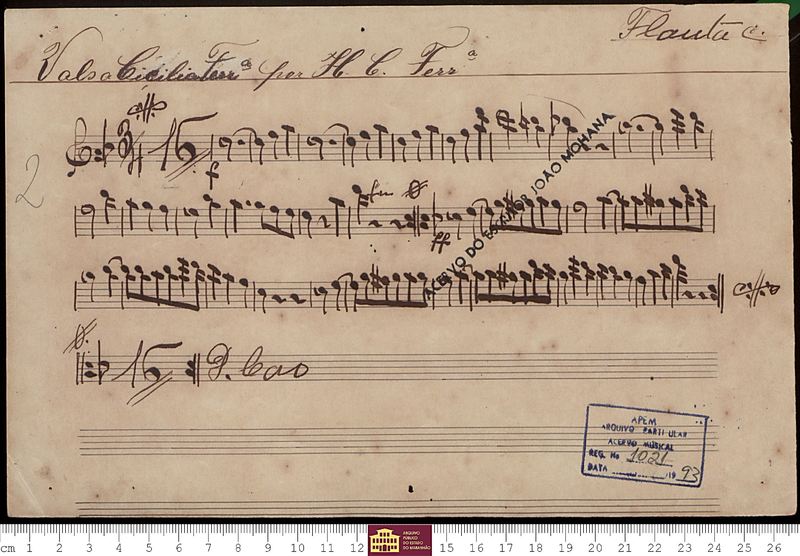 Flauta C.
Valsa Cicilia Ferrª por H. C. Ferrª
2
3/4 16
f
fim
ff
ACERVO DO ESCRITOR JOÃO MOHANA
16 D. Cao
APEM
ARQUIVO PARTICULAR
ACERVO MUSICAL
REG. No 1021
DATA 1993
cm 1 2 3 4 5 6 7 8 9 10 11 12 ARQUIVO PÚBLICO DO ESTADO DO MARANHÃO 15 16 17 18 19 20 21 22 23 24 25 26